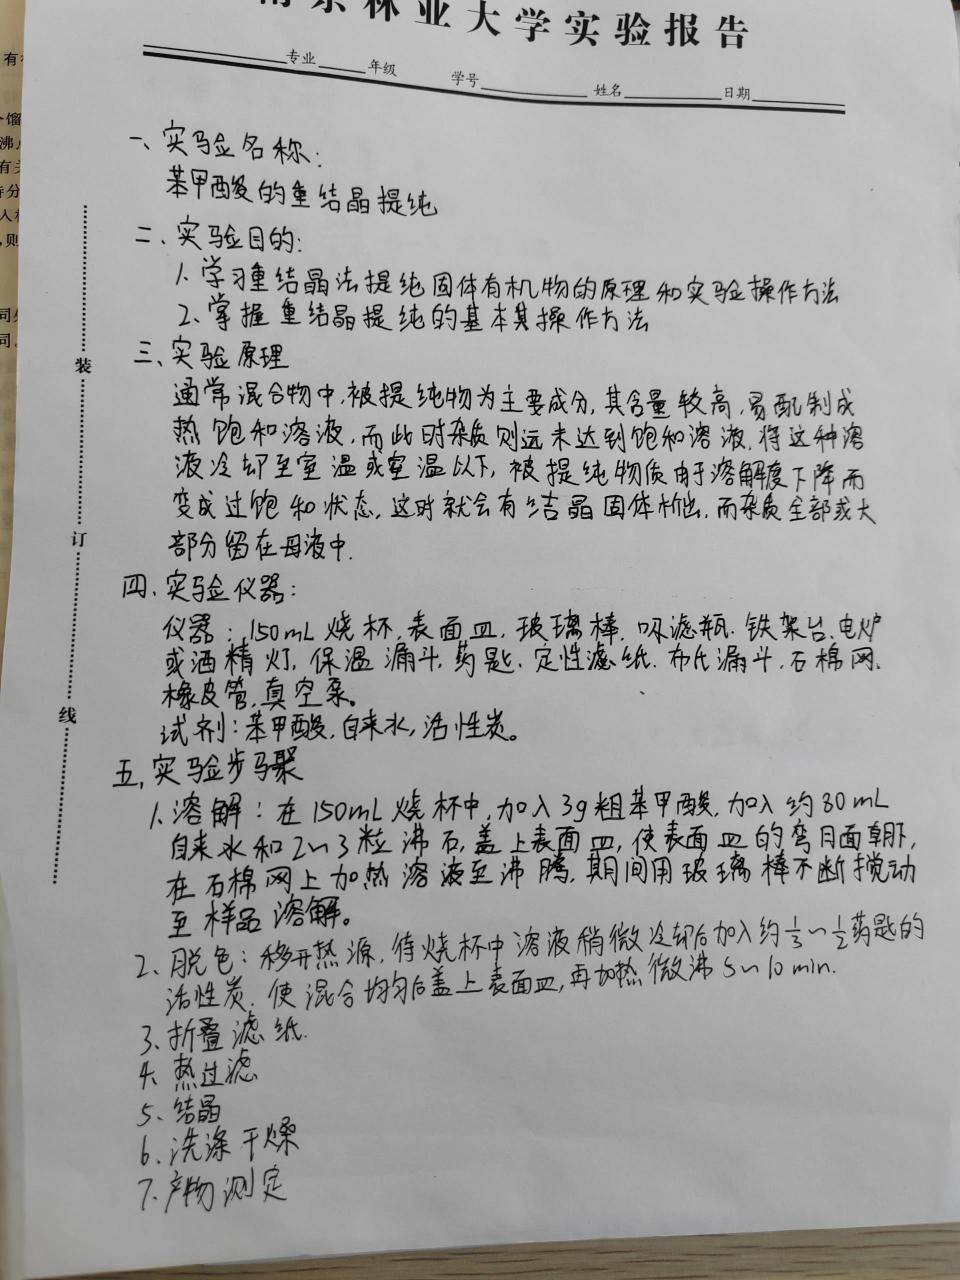 南京林业大学实验报告
专业 年级 学号 姓名 日期
一、实验名称:
苯甲酸的重结晶提纯
二、实验目的:
1、学习重结晶法提纯固体有机物的原理和实验操作方法
2、掌握重结晶提纯的基本其操作方法
三、实验原理
通常混合物中,被提纯物为主要成分,其含量较高,易配制成
热饱和溶液,而此时杂质则远未达到饱和溶液,将这种溶
液冷却至室温或室温以下,被提纯物质由于溶解度下降而
变成过饱和状态,这时就会有结晶固体析出,而杂质全部或大
部分留在母液中.
四、实验仪器:
仪器:150mL烧杯,表面皿,玻璃棒,吸滤瓶、铁架台、电炉
或酒精灯,保温漏斗,药匙、定性滤纸、布氏漏斗,石棉网、
橡皮管,真空泵。
试剂:苯甲酸,自来水,活性炭。
五、实验步骤
1、溶解:在150mL烧杯中,加入3g粗苯甲酸,加入约80mL
自来水和2~3粒沸石,盖上表面皿,使表面皿的弯月面朝下,
在石棉网上加热溶液至沸腾,期间用玻璃棒不断搅动
至样品溶解。
2、脱色:移开热源,待烧杯中溶液稍微冷却后加入约1/3~1/2药匙的
活性炭.使混合均匀后盖上表面皿,再加热微沸5~10min.
3、折叠滤纸.
4、热过滤
5、结晶
6、洗涤干燥
7、产物测定
装
订
线